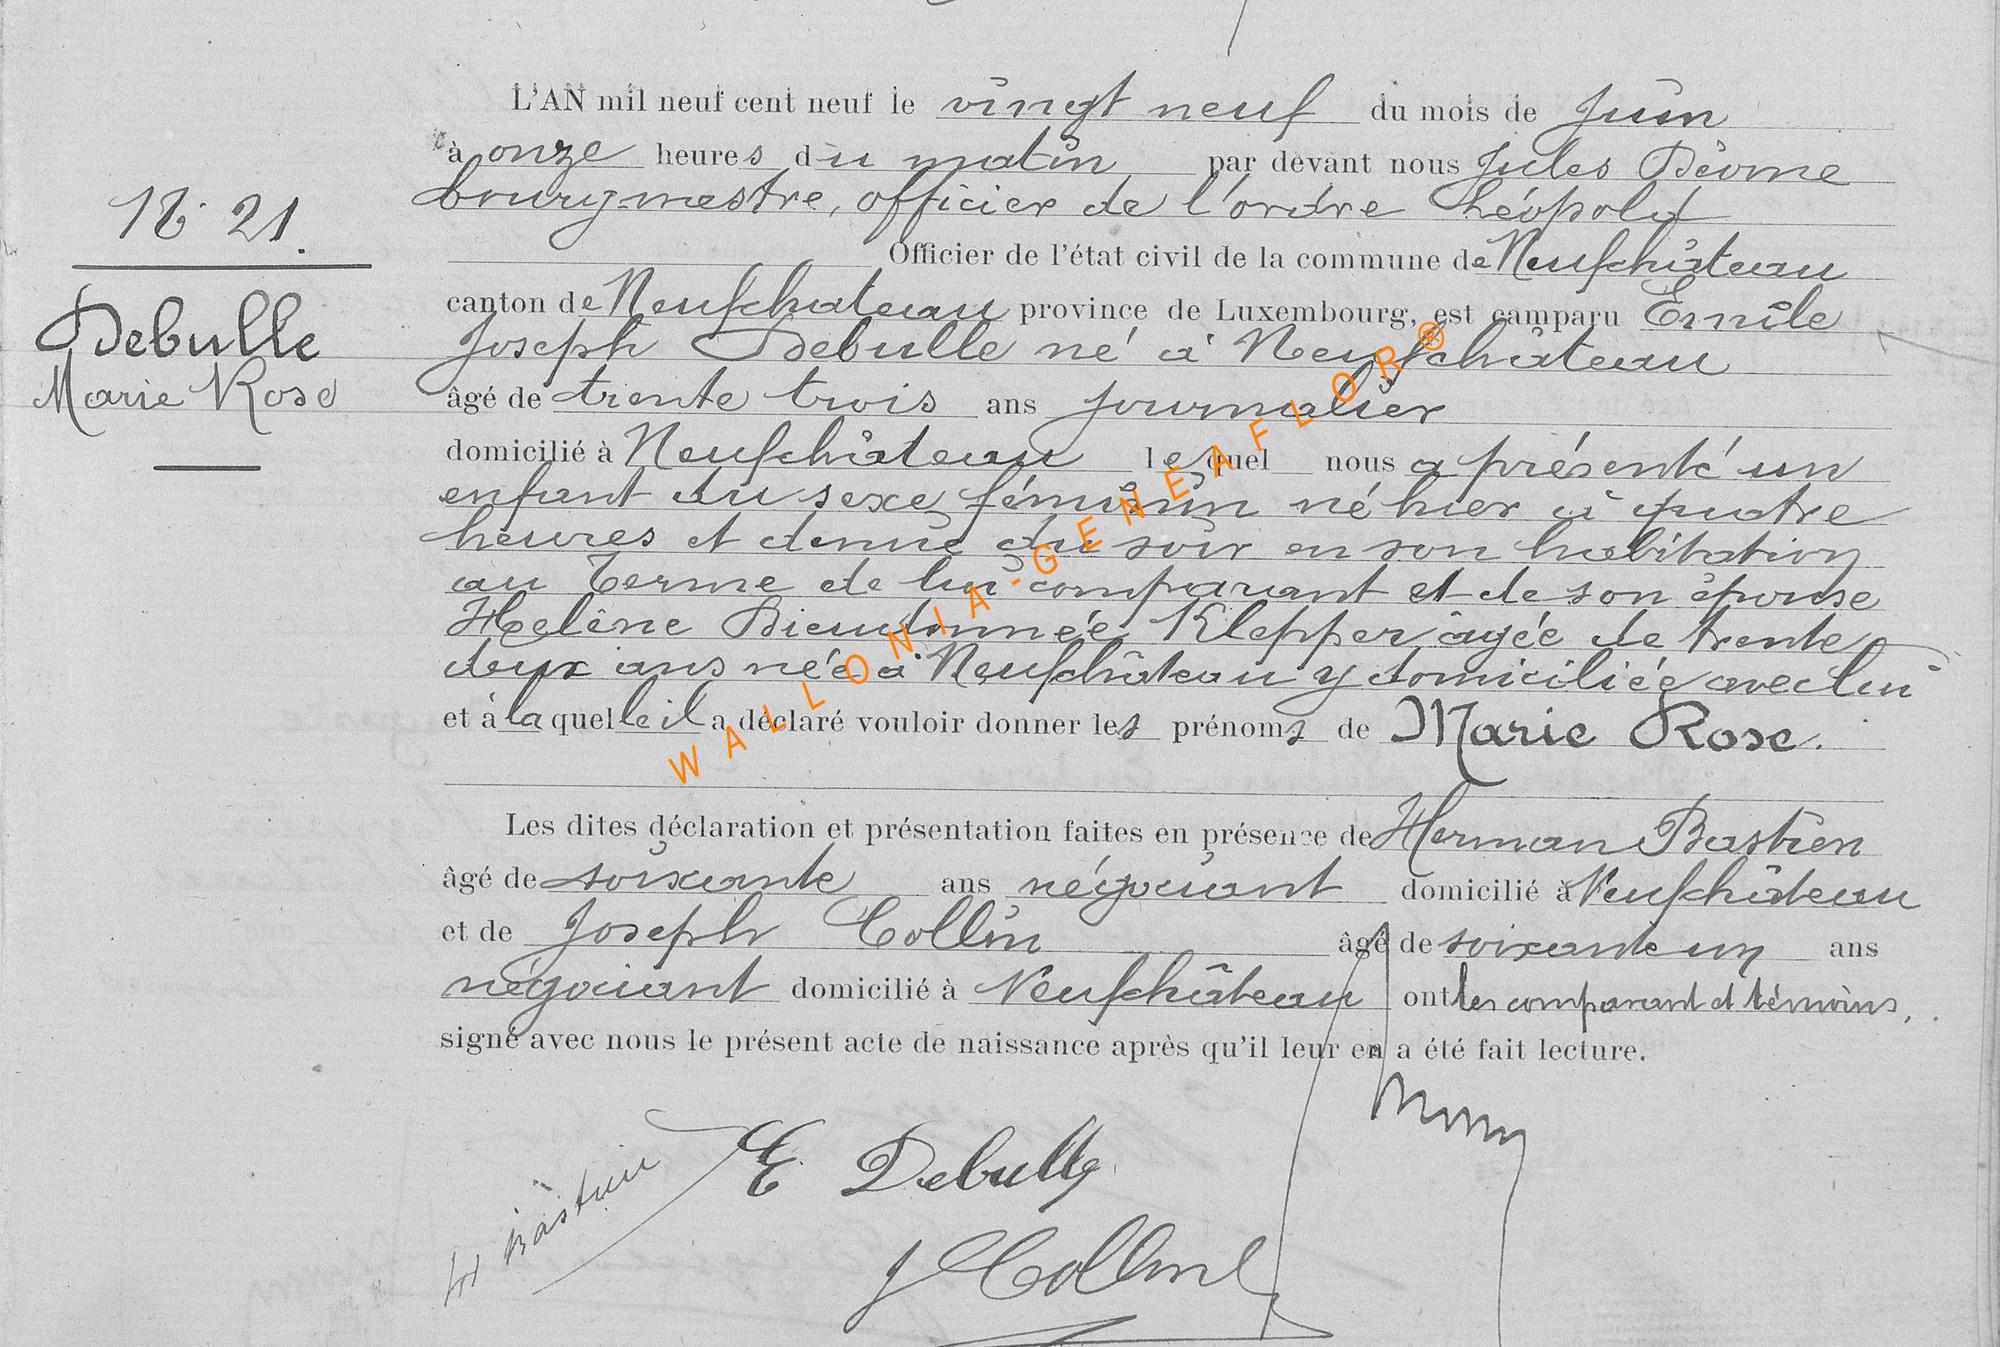 L'AN mil neuf cent neuf le vingt neuf du mois de Juin
à onze heures du matin par devant nous Jules
bourgmestre, officier de l'ordre Léopold
Officier de l'état civil de la commune de Neufchâteau
canton de Neufchateau province de Luxembourg, est comparu Emile
Joseph Debulle né à Neufchâteau
âgé de trente trois ans journalier
domicilié à Neufchâteau lequel nous a présenté un
enfant du sexe féminin né hier à quatre
heures et demie du soir en son habitation
au Terme de lui comparant et de son épouse
Helène Dieudonnée Klepper âgée de trente
deux ans née à Neufchâteau y domiciliée avec lui
et à la quelle il a déclaré vouloir donner les prénoms de Marie Rose.
Les dites déclaration et présentation faites en présence de Herman Bastien
âgé de soixante ans négociant domicilié à Neufchâteau
et de Joseph Collin âgé de soixante un ans
négociant domicilié à Neufchâteau ont les comparant et témoins,
signé avec nous le présent acte de naissance après qu'il leur en a été fait lecture.
N° 21.
Debulle
Marie Rose
H Bastien
E. Debulle
J Collin
WALLONIA-GENEAFLOR®